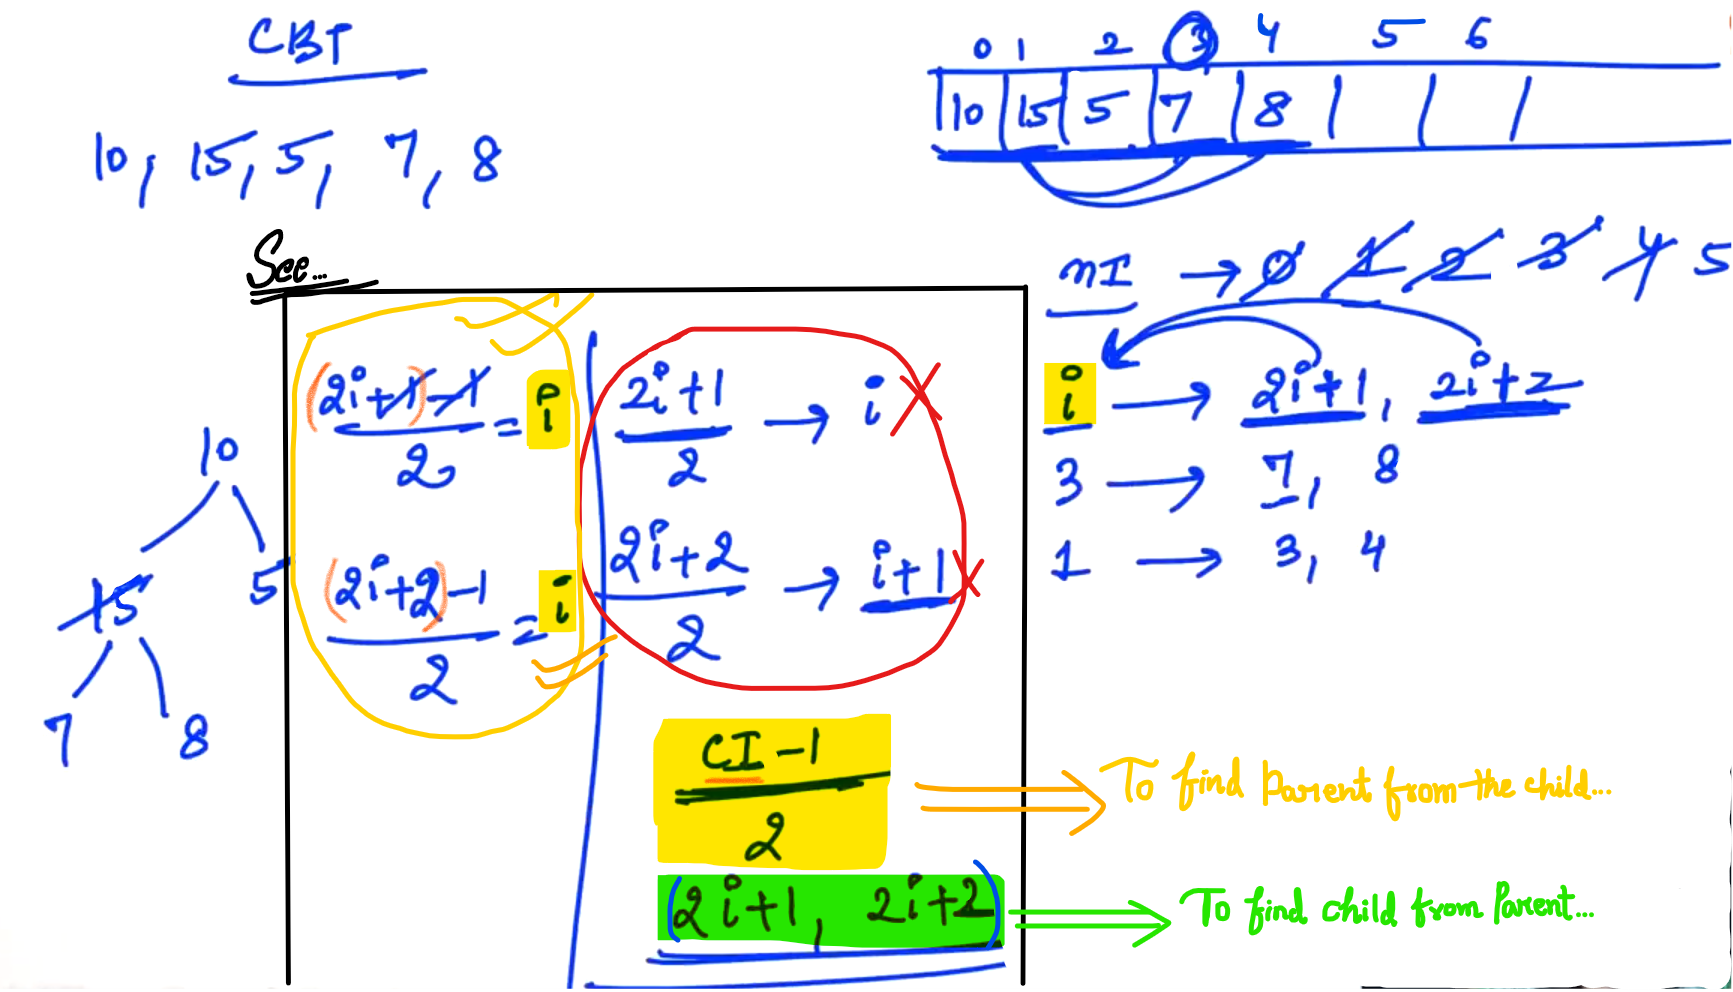 CBT
10, 15, 5, 7, 8
0 1 2 3 4 5 6
10 15 5 7 8
See...
nI → 0 1 2 3 4 5
i → 2i+1, 2i+2
3 → 7, 8
1 → 3, 4
(2i+1)-1 / 2 = i
2i+1 / 2 → i X
(2i+2)-1 / 2 = i
2i+2 / 2 → i+1 X
10
15 5
7 8
CI-1 / 2
To find Parent from the child...
(2i+1, 2i+2)
To find child from Parent...